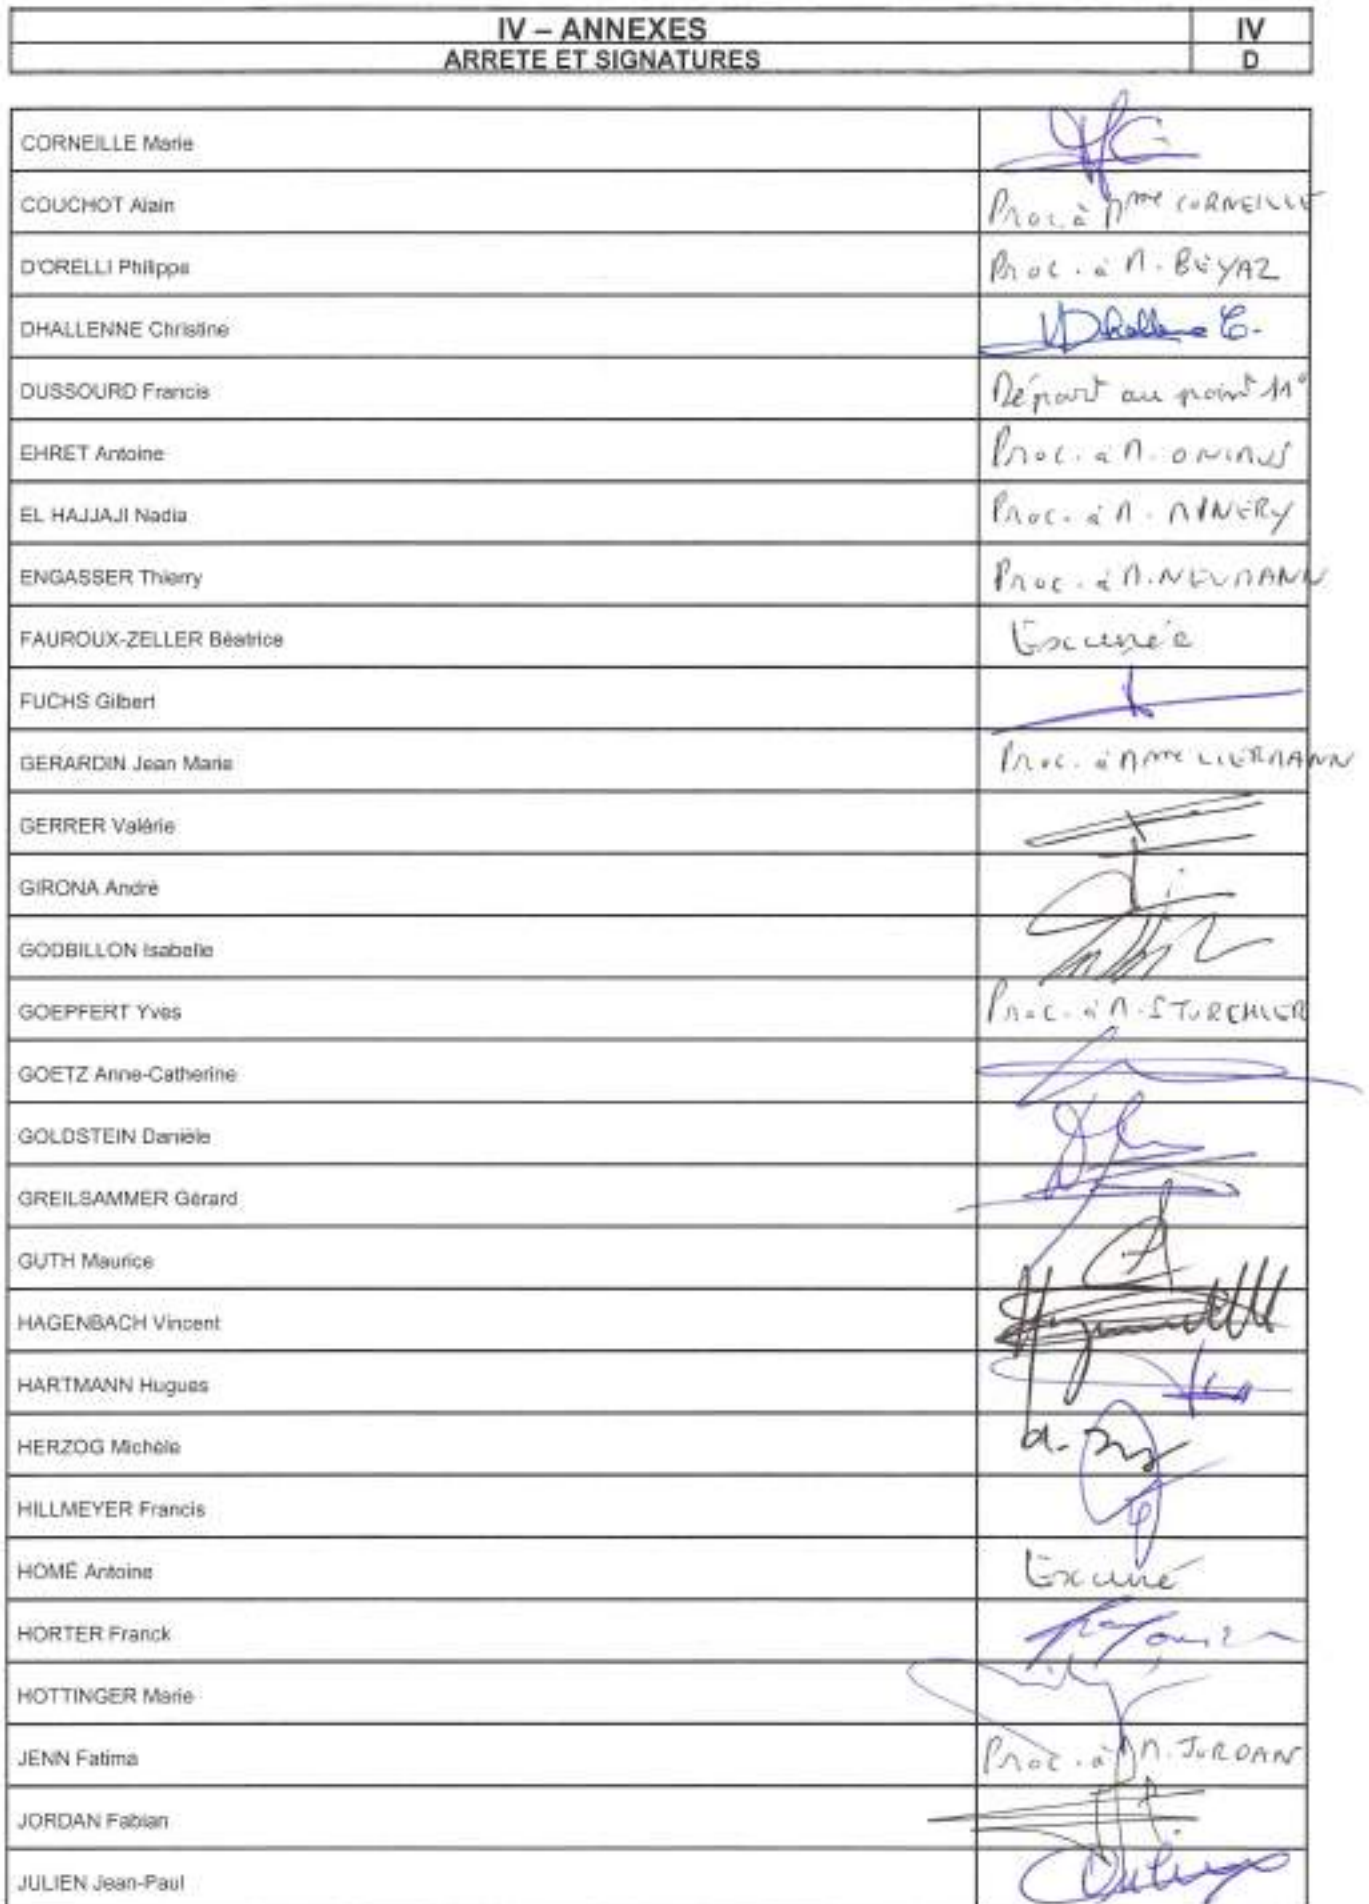 IV – ANNEXES IV
ARRETE ET SIGNATURES D
CORNEILLE Marie
COUCHOT Alain Proc. à Mme CORNEILLE
D'ORELLI Philippe Proc. à M. BEYAZ
DHALLENNE Christine Dhallenne C.
DUSSOURD Francis Départ au point 11°
EHRET Antoine Proc. à M. ONIMUS
EL HAJJAJI Nadia Proc. à M. MINERY
ENGASSER Thierry Proc. à M. NEUMANN
FAUROUX-ZELLER Béatrice Excusée
FUCHS Gilbert
GERARDIN Jean Marie Proc. à Mme LIERMANN
GERRER Valérie
GIRONA André
GODBILLON Isabelle
GOEPFERT Yves Proc. à M. STURCHLER
GOETZ Anne-Catherine
GOLDSTEIN Danièle
GREILSAMMER Gérard
GUTH Maurice
HAGENBACH Vincent
HARTMANN Hugues
HERZOG Michèle
HILLMEYER Francis
HOMÉ Antoine Excusé
HORTER Franck
HOTTINGER Marie
JENN Fatima Proc. à M. JORDAN
JORDAN Fabian
JULIEN Jean-Paul